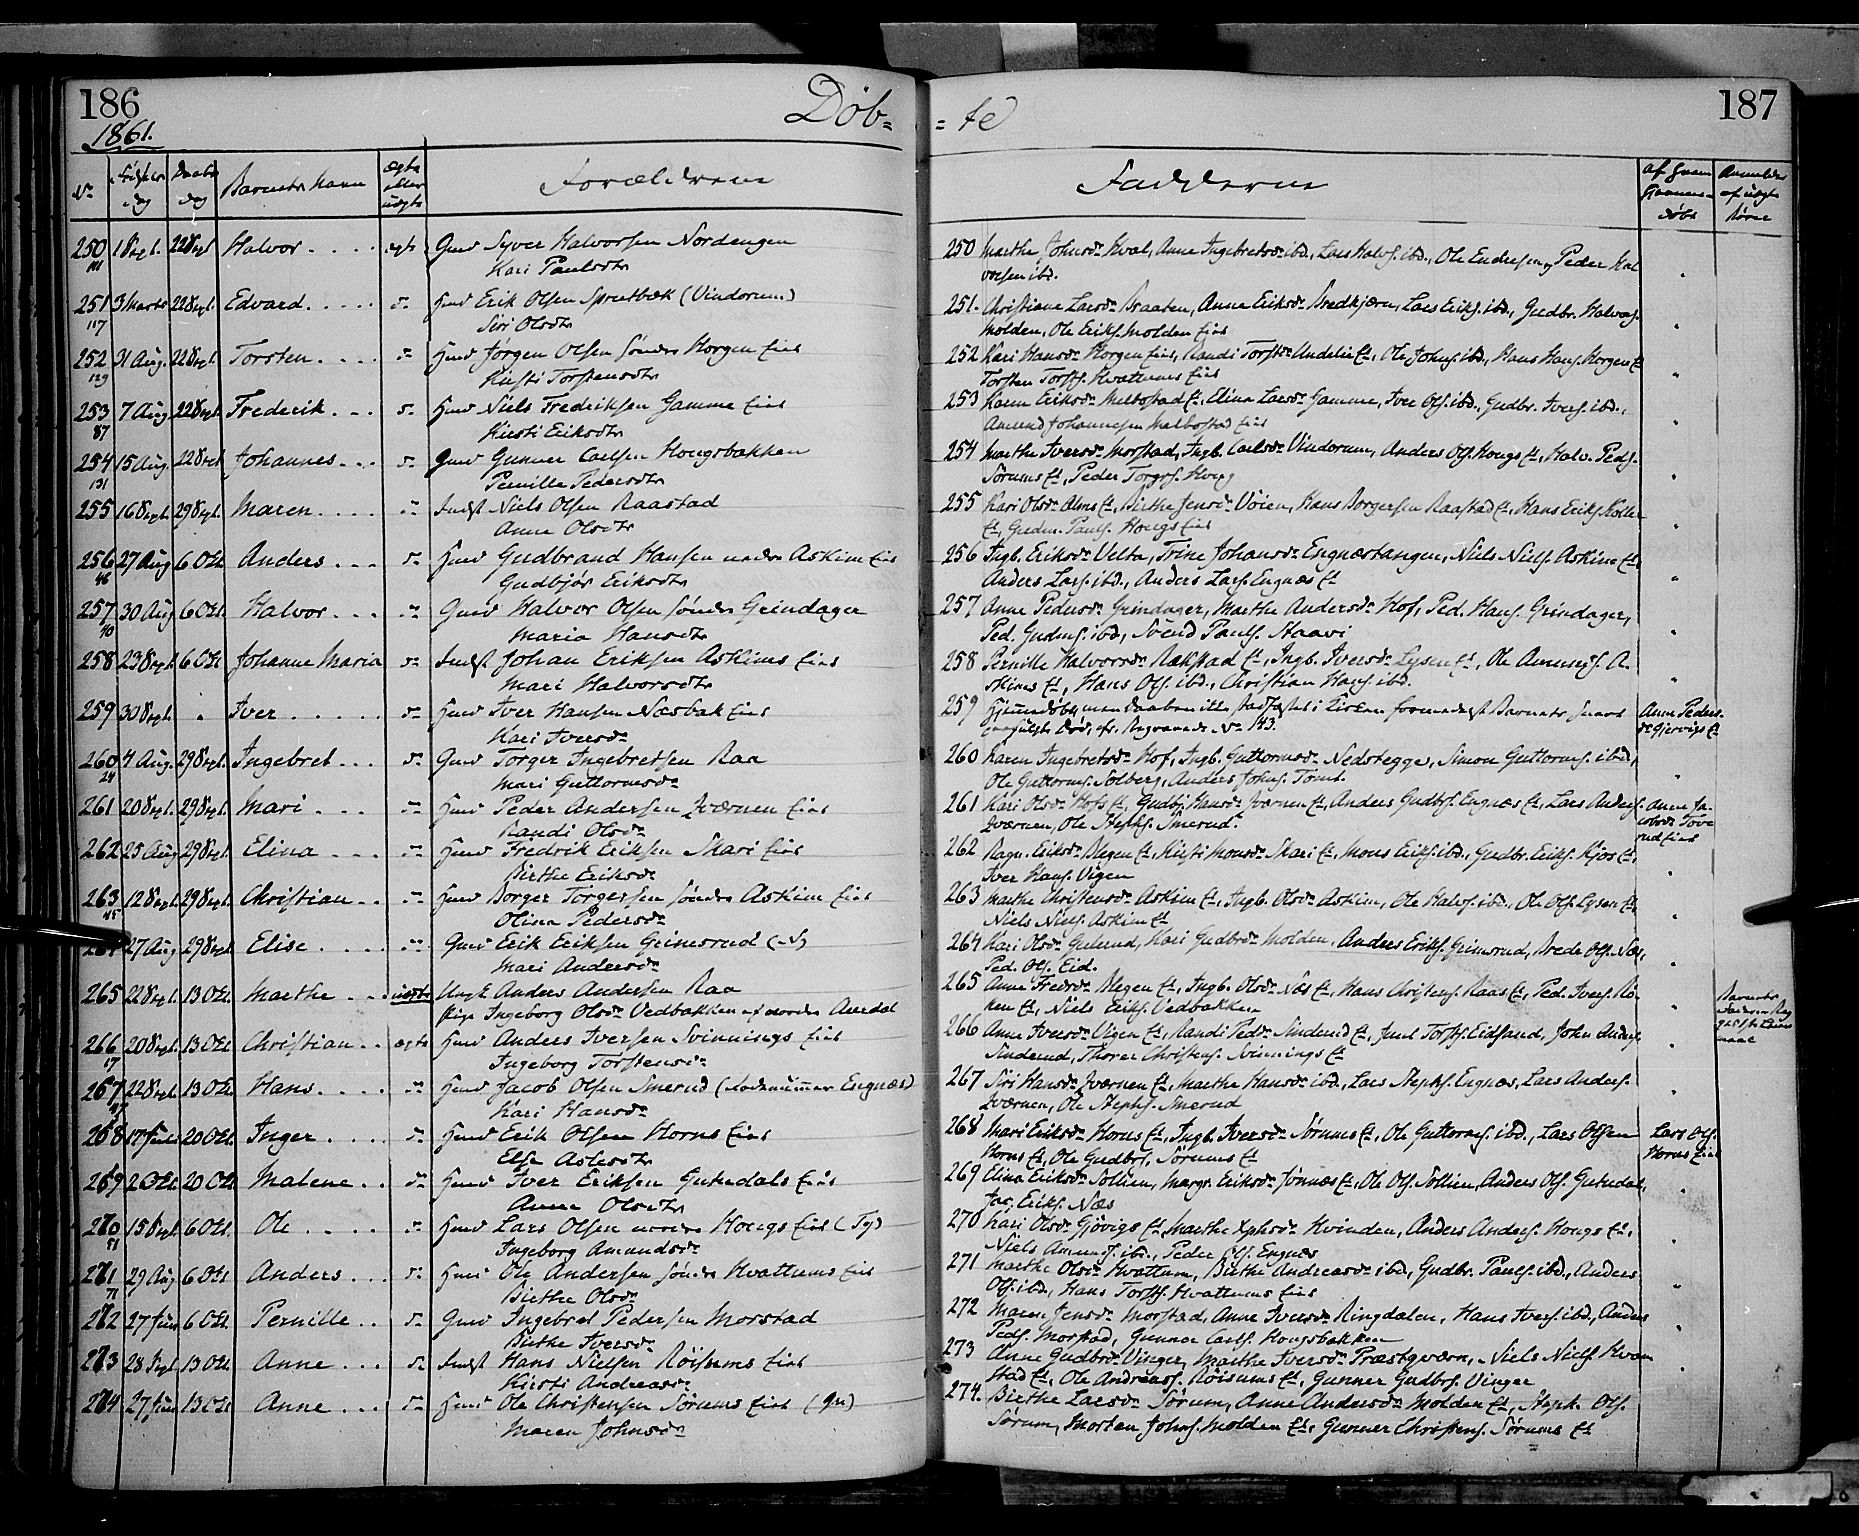 186
1861.
Døb-
No Fødsels dag Daabs dag Barnets Navn ægte eller uægte Forældrene
250 1 Sept. 22 Sept Halvor ægte Gmd Syver Halvorsen Nordengen
Kari Paulsdtr
251 3 Marts 22 Sept. Edvard Hmd Erik Olsen Sprutbæk (Vindorum)
117 Siri Olsdtr
252 31 Aug. 22 Sept. Torsten Hmd Jørgen Olsen søndre Horgen Eie
129 Kirsti Torstensdtr
253 7 Aug 22 Sept. Frederik Hmd Niels Fredriksen Gamme Eie
87 Kirsti Eriksdtr
254 15 Aug. 22 Sept Johannes Gmd Gunner Carlsen Hongsbakken
131 Pernille Pedersdtr
255 16 Sept. 29 Sept. Maren Indst Niels Olsen Raastad
Anne Olsdtr
256 27 Aug 6 Oct Anders Hmd Gudbrand Hansen nedre Askim Eie
46 Gudbjør Eriksdtr
257 30 Aug 6 Oct. Halvor Gmd Halvor Olsen søndre Grindager
40 Maria Hansdtr
258 23 Sept. 6 Oct Johanne Maria Indst Johan Eriksen Askims Eie
Mari Halvorsdtr
259 30 Sept. Iver Hmd Iver Hansen Næsbak Eie
Kari Iversdr
260 4 Aug. 29 Sept. Ingebret Gmd Torger Ingebretsen Raa
24 Mari Guttormsdr
261 20 Sept. 29 Sept. Mari Hmd Peder Andersen Qværnen Eie
Randi Olsdr
262 25 Aug 29 Sept. Elina Hmd Fredrik Eriksen Skari Eie
Birthe Eriksdr
263 12 Sept. 29 Sept. Christian Hmd Borger Torgersen søndre Askim Eie
45 Olina Pedersdr
264 27 Aug 29 Sept. Elise Gmd Erik Eriksen Grimsrud (N)
Mari Andersdr
265 22 Sept. 13 Oct. Marthe uægte Ungk Anders Andersen Raa
Pige Ingeborg Olsdr Vedbakken af nordre Aurdal
266 20 Sept. 13 Oct. Christian ægte Hmd Anders Iversen Svinnings Eie
67 Ingeborg Torstensdr
267 22 Sept. 13 Oct. Hans Hmd Jacob Olsen Smerud (Engnæs)
47 Kari Hansdr
268 17 Juli 20 Oct. Inger Hmd Erik Olsen Horns Eie
Else Aslesdtr
269 2 Oct. 20 Oct. Malene Hmd Iver Eriksen Gutudals Eie
Anne Olsdtr
270 15 Sept. 6 Oct. Ole Hmd Lars Olsen nordre Hongs Eie (Ty)
91 Ingeborg Amundsdr
271 29 Aug 6 Oct Anders Hmd Ole Andersen søndre Kvattums Eie
71 Birthe Olsdr
272 27 Juni 6 Oct. Pernille Gmd Ingebret Pedersen Morstad
Birthe Iversdr
273 28 Sept. 13 Oct. Anne Indst Hans Nielsen Røisums Eie
Kirsti Andreasdr
274 27 Juni 13 Oct Anne Hmd Ole Christensen Sørums Eie (Gn)
Maren Johnsdr
187
-te
Fadderne af hvem hjemmedøbt Anmeldte af uægte Børn
250 Marthe Johnsdr Hval, Anne Ingebretsdr ibd., Lars Halvs. ibd., Ole Endresen, Peder Halvorsen ibd.
251. Christiane Larsdr Braaten, Anne Eriksdr Bredkjærn, Lars Eriks. ibd., Gudbr. Halvors.
Molden, Ole Eriks. Molden Eie
252 Kari Hansdr Horgen Eie, Randi Torstdr Andelie Ee, Ole Johns. ibd., Hans Hans. Horgen Ee
Torsten Torsts. Kvattums Eie
253 Karen Eriksdr Melbostad Ee, Elina Larsdr Gamme, Iver Ols. ibd., Gudbr. Ivers. ibd.,
Amund Johannesen Melbostad Eie
254 Marthe Iversdr Morstad, Ingb. Carlsdr Vindorum, Anders Ols. Hongs Ee, Halv. Peds.
Sørums Ee, Peder Torgrs. Hong
255 Kari Olsdr Alms Ee, Birthe Jensdr Vøien, Hans Borgersen Raastad Ee, Hans Eriks. Koller
Ee, Gudm. Pauls. Hongs Eie
256 Ingb. Eriksdr Velta, Trine Johansdr Engnæstangen, Niels Niels. Askim Ee
Anders Lars. ibd., Anders Lars. Engnæs Ee
257 Anne Pedersdr Grindager, Marthe Andersdr Hof, Ped. Hans. Grindager,
Ped. Gudms. ibd., Svend Pauls. Staavi
258 Pernille Halvorsdr Rækstad Ee, Ingb. Iversdr Lysen Ee, Ole Amunds. A-
skims Ee, Hans Ols. ibd., Christian Hans. ibd.
259 Hjemmedøbt, men Daaben ikke stadfæstet i Kirken formedelst Barnets snart Anne Peders-
paafulgte Død, cfr. Begravede No 143. dr Gjøvigs Ee
260 Karen Ingebretsdr Hof, Ingb. Guttormsdr Nedstegge, Simon Guttorms. ibd.,
Ole Guttorms. Solberg, Anders Johns. Tomt.
261 Kari Olsdr Hofs Ee, Gudbj. Hansdr Qværnen Ee, Anders Gudbs. Engnæs Ee, Lars Anders. Anne Ja-
Qværnen, Ole Stephs. Smerud. cobsdr Tove
rud Eie
262 Ragn. Eriksdr Blegen Ee, Kirsti Monsdr Skari Ee, Mons Eriks. ibd., Gudbr. Eriks. Kjos Ee,
Iver Hans. Vigen
263 Marthe Christensdr Askim Ee, Ingb. Olsdr Askim, Ole Halvs. ibd., Ole Ols. Lysen Ee,
Niels Niels. Askim Ee
264 Kari Olsdr Gulerud, Kari Gudbrdr Molden, Anders Eriks. Grimsrud, Brede Ols. Næs,
Ped. Ols. Eid.
265 Anne Fredrdr Blegen Ee, Ingb. Olsdr Næs Ee, Hans Christens. Raas Ee, Ped. Ivers. Rø-
ken Ee, Niels Eriks. Vedbakken
266 Anne Iversdr Vigen Ee, Randi Pedsdr Sinderud Ee, Juul Torsts. Eidsand, John Anders.
Sinderud, Thorer Christens. Svinnings Ee
267 Siri Hansdr Qværnen Ee, Marthe Hansdr ibd., Lars Stephs. Engnæs, Lars Anders.
Qværnen, Ole Stephs. Smerud
268 Mari Eriksdr Horns Ee, Ingb. Iversdr Sørums Ee, Ole Guttorms. ibd., Lars Olsen Lars Ols.
Horns Ee, Ole Gudbrs. Sørums Ee Horns Eie
269 Elina Eriksdr Sollien, Margr. Eriksdr Jønnæs Ee, Ole Ols. Sollien, Anders Ols. Gutudal,
Jac. Eriks. Næs
270 Kari Olsdr Gjøvigs Ee, Marthe Xphsdr Hvinden, Anders Anders. Hongs Ee,
Niels Amunds. ibd., Peder Ols. Engnæs
271 Marthe Olsdr Kvattum, Birthe Andreasdr ibd., Gudbr. Pauls. ibd., Anders
Ols. ibd., Hans Torsts. Kvattums Eie
272 Maren Jensdr Morstad, Anne Iversdr Ringdalen, Hans Ivers. ibd., Anders
Peds. Morstad, Gunner Carls. Hongsbakken
273 Anne Gudbrdr Vinger, Marthe Iversdr Præstqværn, Niels Niels. Kvam-
stad Ee, Ole Andreass. Røisums Ee, Gunner Gudbrs. Vinger
274. Birthe Larsdr Sørum, Anne Andersdr Molden Ee, Steph. Ols.
Sørum, Morten Johns. Molden Ee, Gunner Christens. Sørums Ee